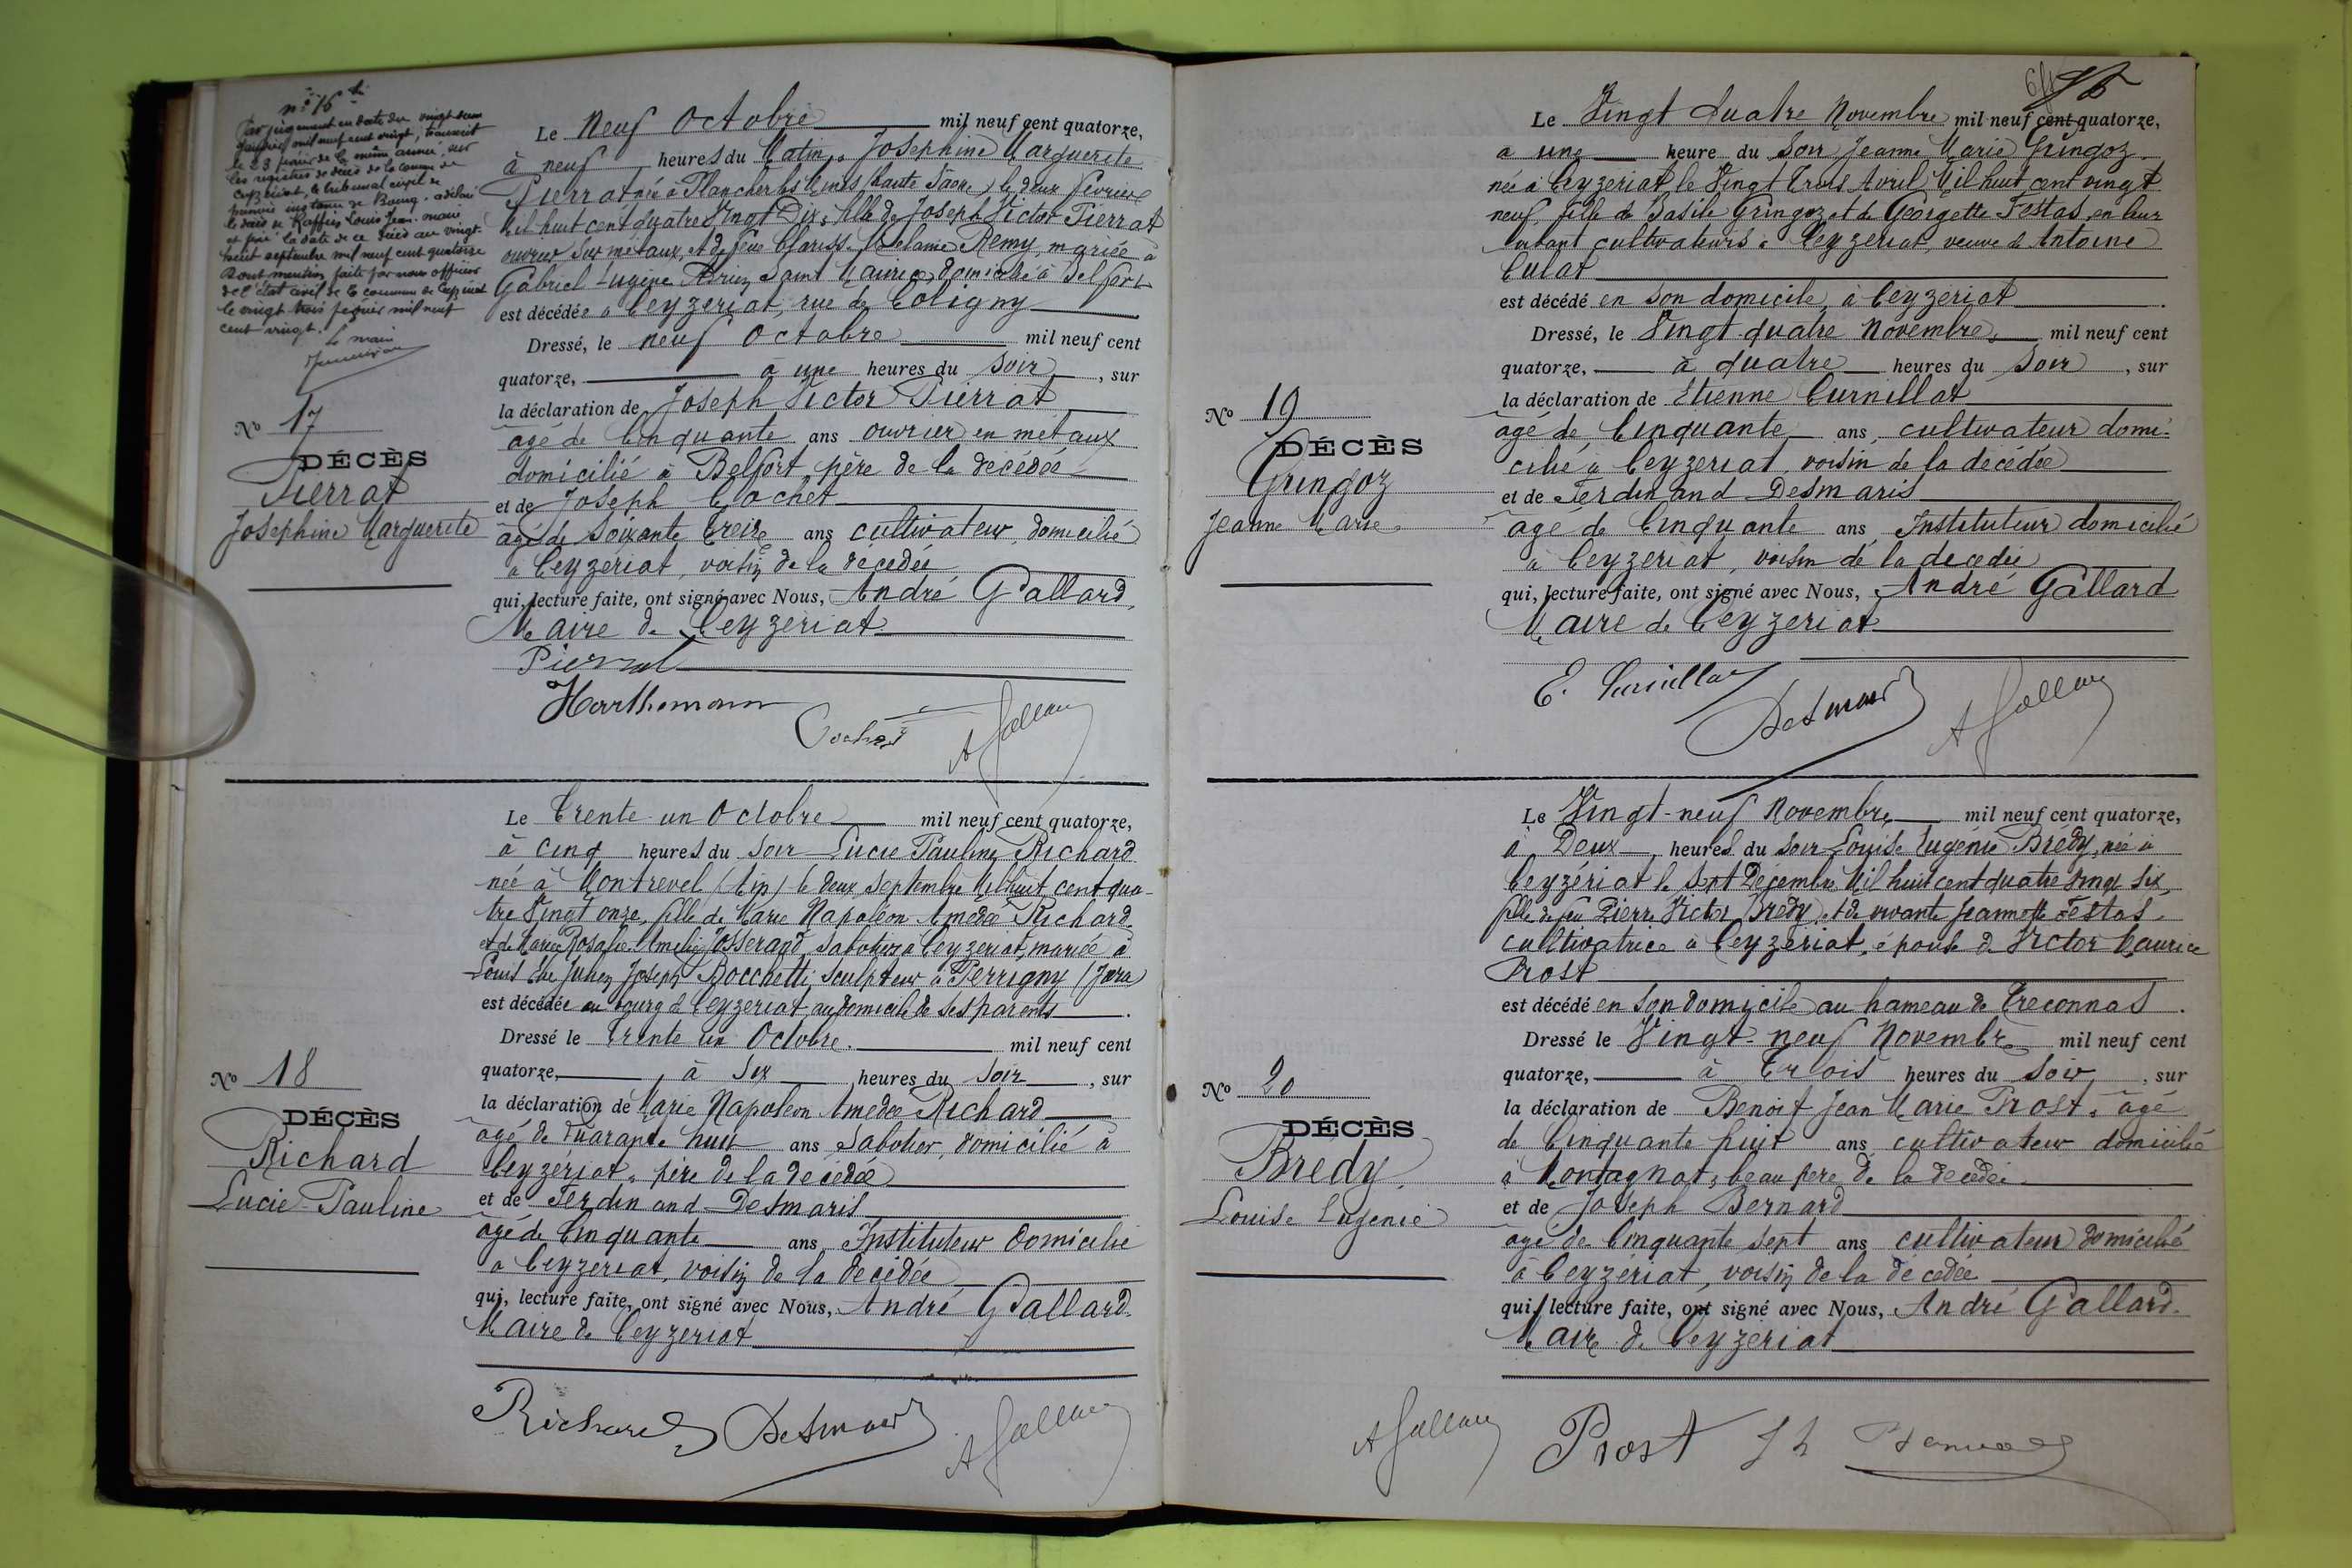 n° 16 bis
Par jugement en date du vingt deux
janvier mil neuf cent vingt, transcrit
le 23 février de la même année, sur
les registres de décès de la commune de
Ceyzériat, le tribunal civil de
première instance de Bourg, a déclaré
le décès de Raffin Louis Jean
et fixé la date de ce décès au vingt
huit septembre mil neuf cent quatorze
Dont mention faite par nous officier
de l'état civil de la commune de Ceyzériat
le vingt trois février mil neuf
cent vingt.
Le maire
Le Neuf Octobre mil neuf cent quatorze,
à neuf heures du Matin, Josephine Marguerite
Pierrat née à Plancher les Mines (haute Saône) le deux fevrier
Mil huit cent quatre Vingt Dix, fille de Joseph Victor Pierrat
ouvrier sur métaux, et de feue Clarisse Melanie Remy, mariée à
Gabriel Eugène Adrien Saint Maurice, domiciliée à Belfort
est décédée à Ceyzeriat, rue de Coligny
Dressé, le neuf Octobre mil neuf cent
quatorze, à une heures du soir, sur
la déclaration de Joseph Victor Pierrat
âgé de Cinquante ans ouvrier en metaux
domicilié à Belfort père de la décédée
et de Joseph Cochet
âgé de Soixante Treize ans cultivateur, domicilié
à Ceyzeriat, voisin de la décédée
qui, lecture faite, ont signé avec Nous, André Gallard,
Maire de Ceyzeriat
Pierrat
Harthemann
Cochet A Gallard
N° 17
DÉCÈS
Pierrat
Josephine Marguerite
Le Trente un Octobre mil neuf cent quatorze,
à cinq heures du soir Lucie Pauline Richard
née à Montrevel (Ain) le deux Septembre Mil huit cent qua-
tre Vingt onze, fille de Marie Napoléon Amedée Richard
et de Marie Rosalie Amelie Josserand, sabotiers à Ceyzeriat, mariée à
Louis Elie Julien Joseph Bocchetti, sculpteur à Perrigny (Jura)
est décédée au bourg de Ceyzeriat au domicile de ses parents.
Dressé le Trente un Octobre. mil neuf cent
quatorze, à Six heures du Soir, sur
la déclaration de Marie Napoléon Amedée Richard
âgé de Quarante huit ans Sabotier, domicilié à
Ceyzériat, père de la decédée
et de Ferdinand Desmaris
âgé de Cinquante ans Instituteur domicilié
à Ceyzeriat, voisin de la decédée
qui, lecture faite, ont signé avec Nous, André Gallard
Maire de Ceyzeriat
Richard Desmaris A Gallard
N° 18
DÉCÈS
Richard
Lucie Pauline
64
Le Vingt Quatre Novembre mil neuf cent quatorze,
à une heure du Soir Jeanne Marie Gringoz
née à Ceyzeriat, le Vingt Trois Avril Mil huit cent vingt
neuf fille de Basile Gringoz et de Georgette Festas, en leur
vivant cultivateurs à Ceyzeriat, veuve de Antoine
Culat
est décédé en son domicile, à Ceyzeriat.
Dressé, le Vingt-quatre Novembre, mil neuf cent
quatorze, à quatre heures du Soir, sur
la déclaration de Etienne Curnillat
âgé de Cinquante ans, cultivateur domi-
cilié à Ceyzeriat, voisin de la décédée
et de Ferdinand Desmaris
âgé de Cinquante ans Instituteur domicilié
à Ceyzeriat, voisin de la decedée
qui, lecture faite, ont signé avec Nous, André Gallard
Maire de Ceyzeriat
E. Curnillat Desmaris A Gallard
N° 19
DÉCÈS
Gringoz
Jeanne Marie
Le Vingt-neuf Novembre mil neuf cent quatorze,
à Deux heures du soir Louise Eugénie Brédy, née à
Ceyzériat le Sept Décembre Mil huit cent quatre vingt six,
fille de feu Pierre Victor Brédy et de vivante Jeannette Festas,
cultivatrice à Ceyzériat, épouse de Victor Maurice
Prost
est décédé en son domicile au hameau de Treconnas.
Dressé le Vingt-neuf Novembre mil neuf cent
quatorze, à Trois heures du Soir, sur
la déclaration de Benoit Jean Marie Prost, âgé
de Cinquante huit ans cultivateur domicilié
à Montagnat, beau père de la décédée
et de Joseph Bernard
âgé de Cinquante sept ans cultivateur domicilié
à Ceyzériat, voisin de la decédée
qui, lecture faite, ont signé avec Nous, André Gallard.
Maire de Ceyzeriat
A Gallard Prost Jh Bernard
N° 20
DÉCÈS
Bredy
Louise Eugenie